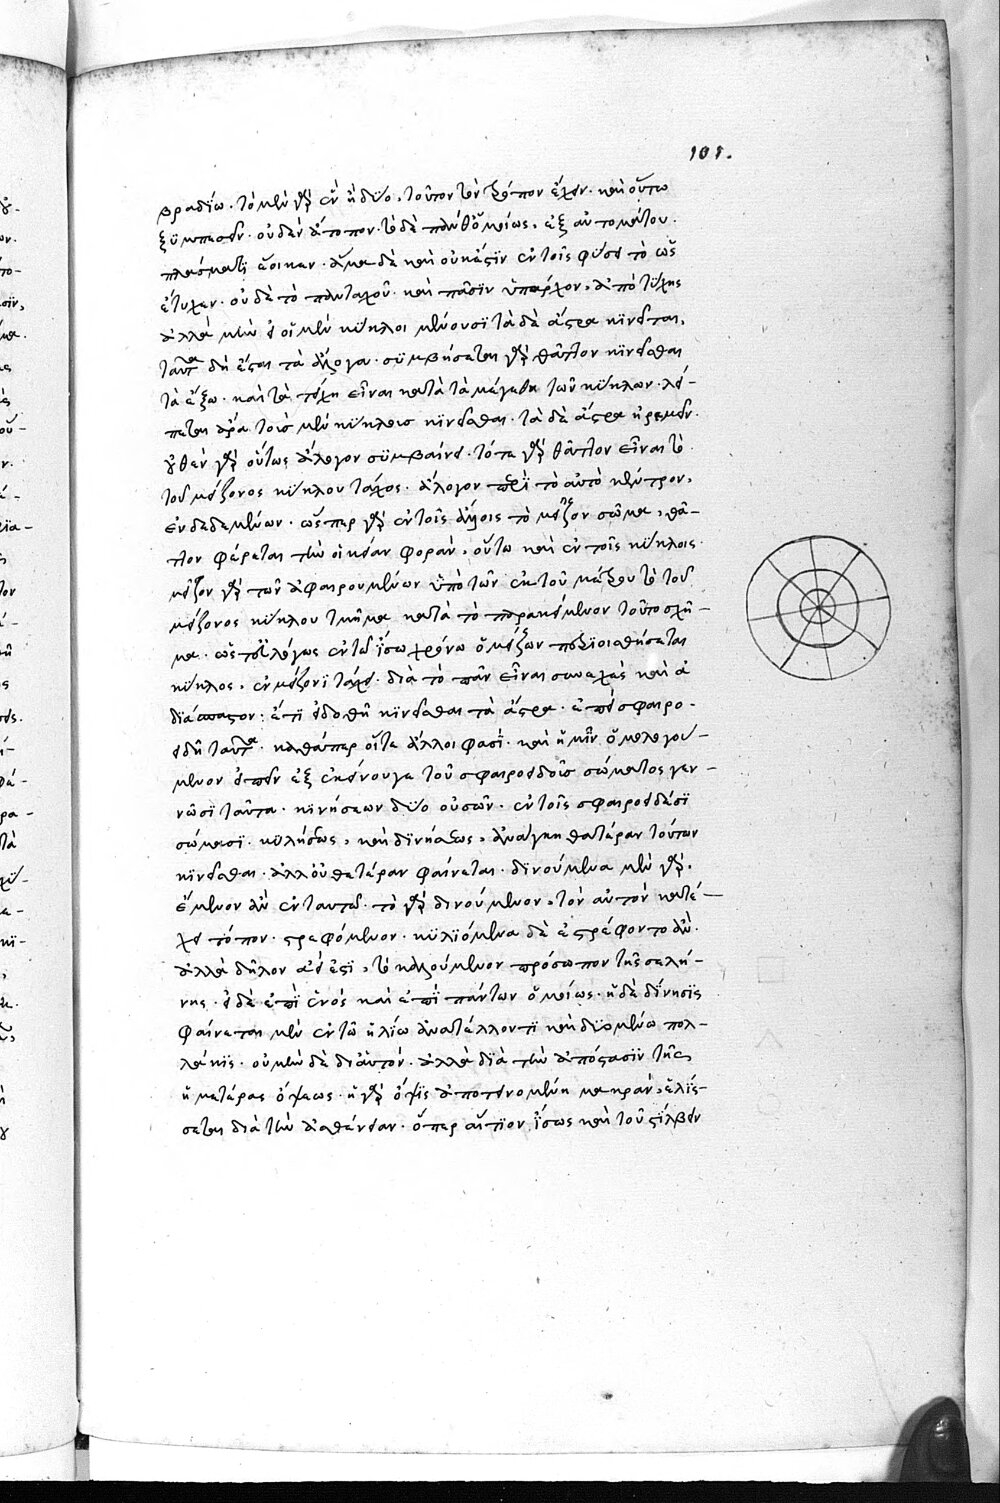 101.
βραδίω. τὸ μὲν γὰρ ἓν ἢ δύο, τοῦτον τὸν τρόπον ἔχειν. καὶ οὕτω
ξυμπεσεῖν. οὐδὲν ἄτοπον. τὸ δὲ πλῆθος ὁμοίως, ἐξ αὐτομάτου.
πλάσματι ἔοικεν. ἅμα δὲ καὶ οὐκ ἔστιν ἐν τοῖς φύσει τὸ ὡς
ἔτυχεν. οὐδὲ τὸ πανταχοῦ. καὶ πᾶσιν ὑπάρχον, ἀπὸ τύχης
ἀλλὰ μὴν εἰ οἱ μὲν κύκλοι μένουσι τὰ δὲ ἄστρα κινεῖται,
ταῦτα δὴ ἔσται τὰ ἄλογα. συμβήσεται γὰρ θᾶττον κινεῖσθαι
τὰ ἔξω. καὶ τὰ τάχη εἶναι κατὰ τὰ μεγέθη τῶν κύκλων. λεί-
πεται ἄρα τοὺς μὲν κύκλους κινεῖσθαι. τὰ δὲ ἄστρα ἠρεμεῖν.
οὐθὲν γὰρ οὕτως ἄλογον συμβαίνει. τό τε γὰρ θᾶττον εἶναι τὸ
τοῦ μείζονος κύκλου τάχος. ἄλογον περὶ τὸ αὐτὸ κέντρον,
ἐνδεδεμένων. ὥσπερ γὰρ ἐν τοῖς ἄλλοις τὸ μεῖζον σῶμα, θᾶ-
ττον φέρεται τὴν οἰκείαν φορὰν, οὕτω καὶ ἐν τοῖς κύκλοις.
μεῖζον γὰρ τῶν ἀφαιρουμένων ὑπὸ τῶν ἐκ τοῦ μέσου τὸ τοῦ
μείζονος κύκλου τμῆμα κατὰ τὸ παρακείμενον τοῦτο σχῆ-
μα. ὥστ' εὐλόγως ἐν τῷ ἴσω χρόνω ὁ μείζων περιοισθήσεται
κύκλος, ἐν μείζονι τάχει. διὰ τὸ πᾶν εἶναι συνεχὲς καὶ ἀ
διάσπαστον: ἔτι εἰ δοθῆ κινεῖσθαι τὰ ἄστρα. ἐπεὶ σφαιρο-
ειδῆ ταῦτα. καθάπερ οἵ τε ἄλλοι φασὶ. καὶ ἡμῖν ὁμολογού-
μενον εἰπεῖν ἐξ ἐκείνου γε τοῦ σφαιροειδοῦς σώματος γεν-
νῶσι ταῦτα. κινήσεων δύο οὐσῶν. ἐν τοῖς σφαιροειδέσι
σώμασι. κυλήσεως, καὶ δινήσεως, ἀνάγκη θατέραν τούτων
κινεῖσθαι. ἀλλ' οὐθετέραν φαίνεται. δινούμενα μὲν γὰρ.
ἔμενον ἂν ἐν ταυτῷ. τὸ γὰρ δινούμενον, τὸν αὐτὸν κατέ-
χει τόπον. στρεφόμενον. κυλιόμενα δὲ ἐστρέφοντο ἂν.
ἀλλὰ δῆλον ἀεί ἐστι, τὸ καλούμενον πρόσωπον τῆς σελή-
νης. εἰ δὲ ἐπὶ ἑνός καὶ ἐπὶ πάντων ὁμοίως. ἡ δὲ δίνησις
φαίνεται μὲν ἐν τῶ ἡλίω ἀνατέλλοντι καὶ δυομένω πολ-
λάκις. οὐ μὴν δὲ δι' αὐτόν. ἀλλὰ διὰ τὴν ἀπόστασιν τῆς
ἡμετέρας ὄψεως. ἡ γὰρ ὄψις ἀποτεινομένη μακρὰν, ἑλίσ-
σεται διὰ τὴν ἀσθένειαν. ὅπερ αἴτιον ἴσως καὶ τοῦ στίλβειν